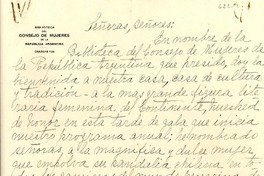 BIBLIOTECA
DEL
CONSEJO DE MUJERES
DE LA
REPUBLICA ARGENTINA
CHARCAS
Señoras, señores:
En nombre de la
Biblioteca del Consejo de Mujeres de
la República Argentina que presido, doy la
bienvenida a nuestra casa, casa de cultura
y tradición - a la mas grande figura lite
raria femenina del Continente, huesped de
honor en esta tarde de gala que inicia
nuestro programa anual; he nombrado
señoras, a la magnifica y dulce mujer
que embolva su sandalia chilena en to